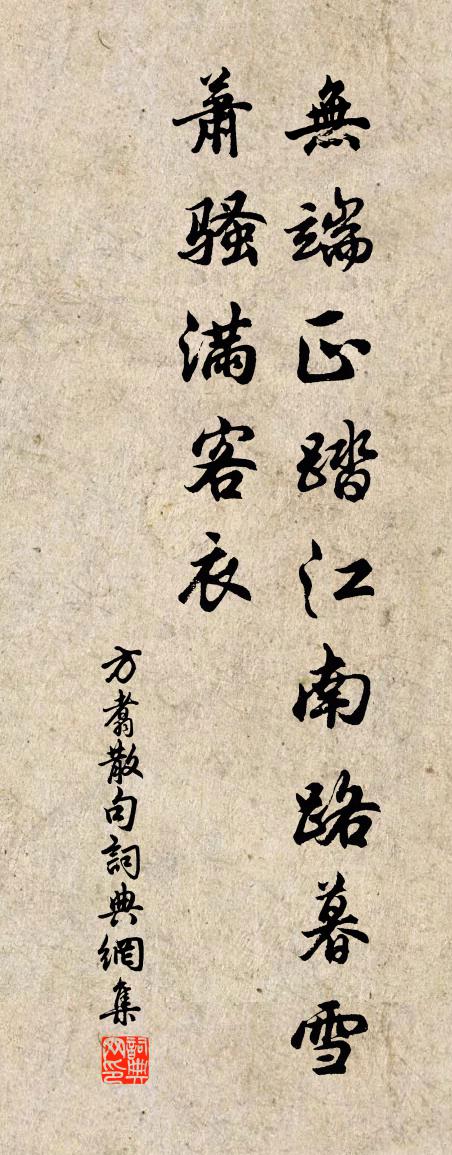 無端正踏江南路暮雪
蕭騷滿客衣
方翥散句詞典網集
詞典网印